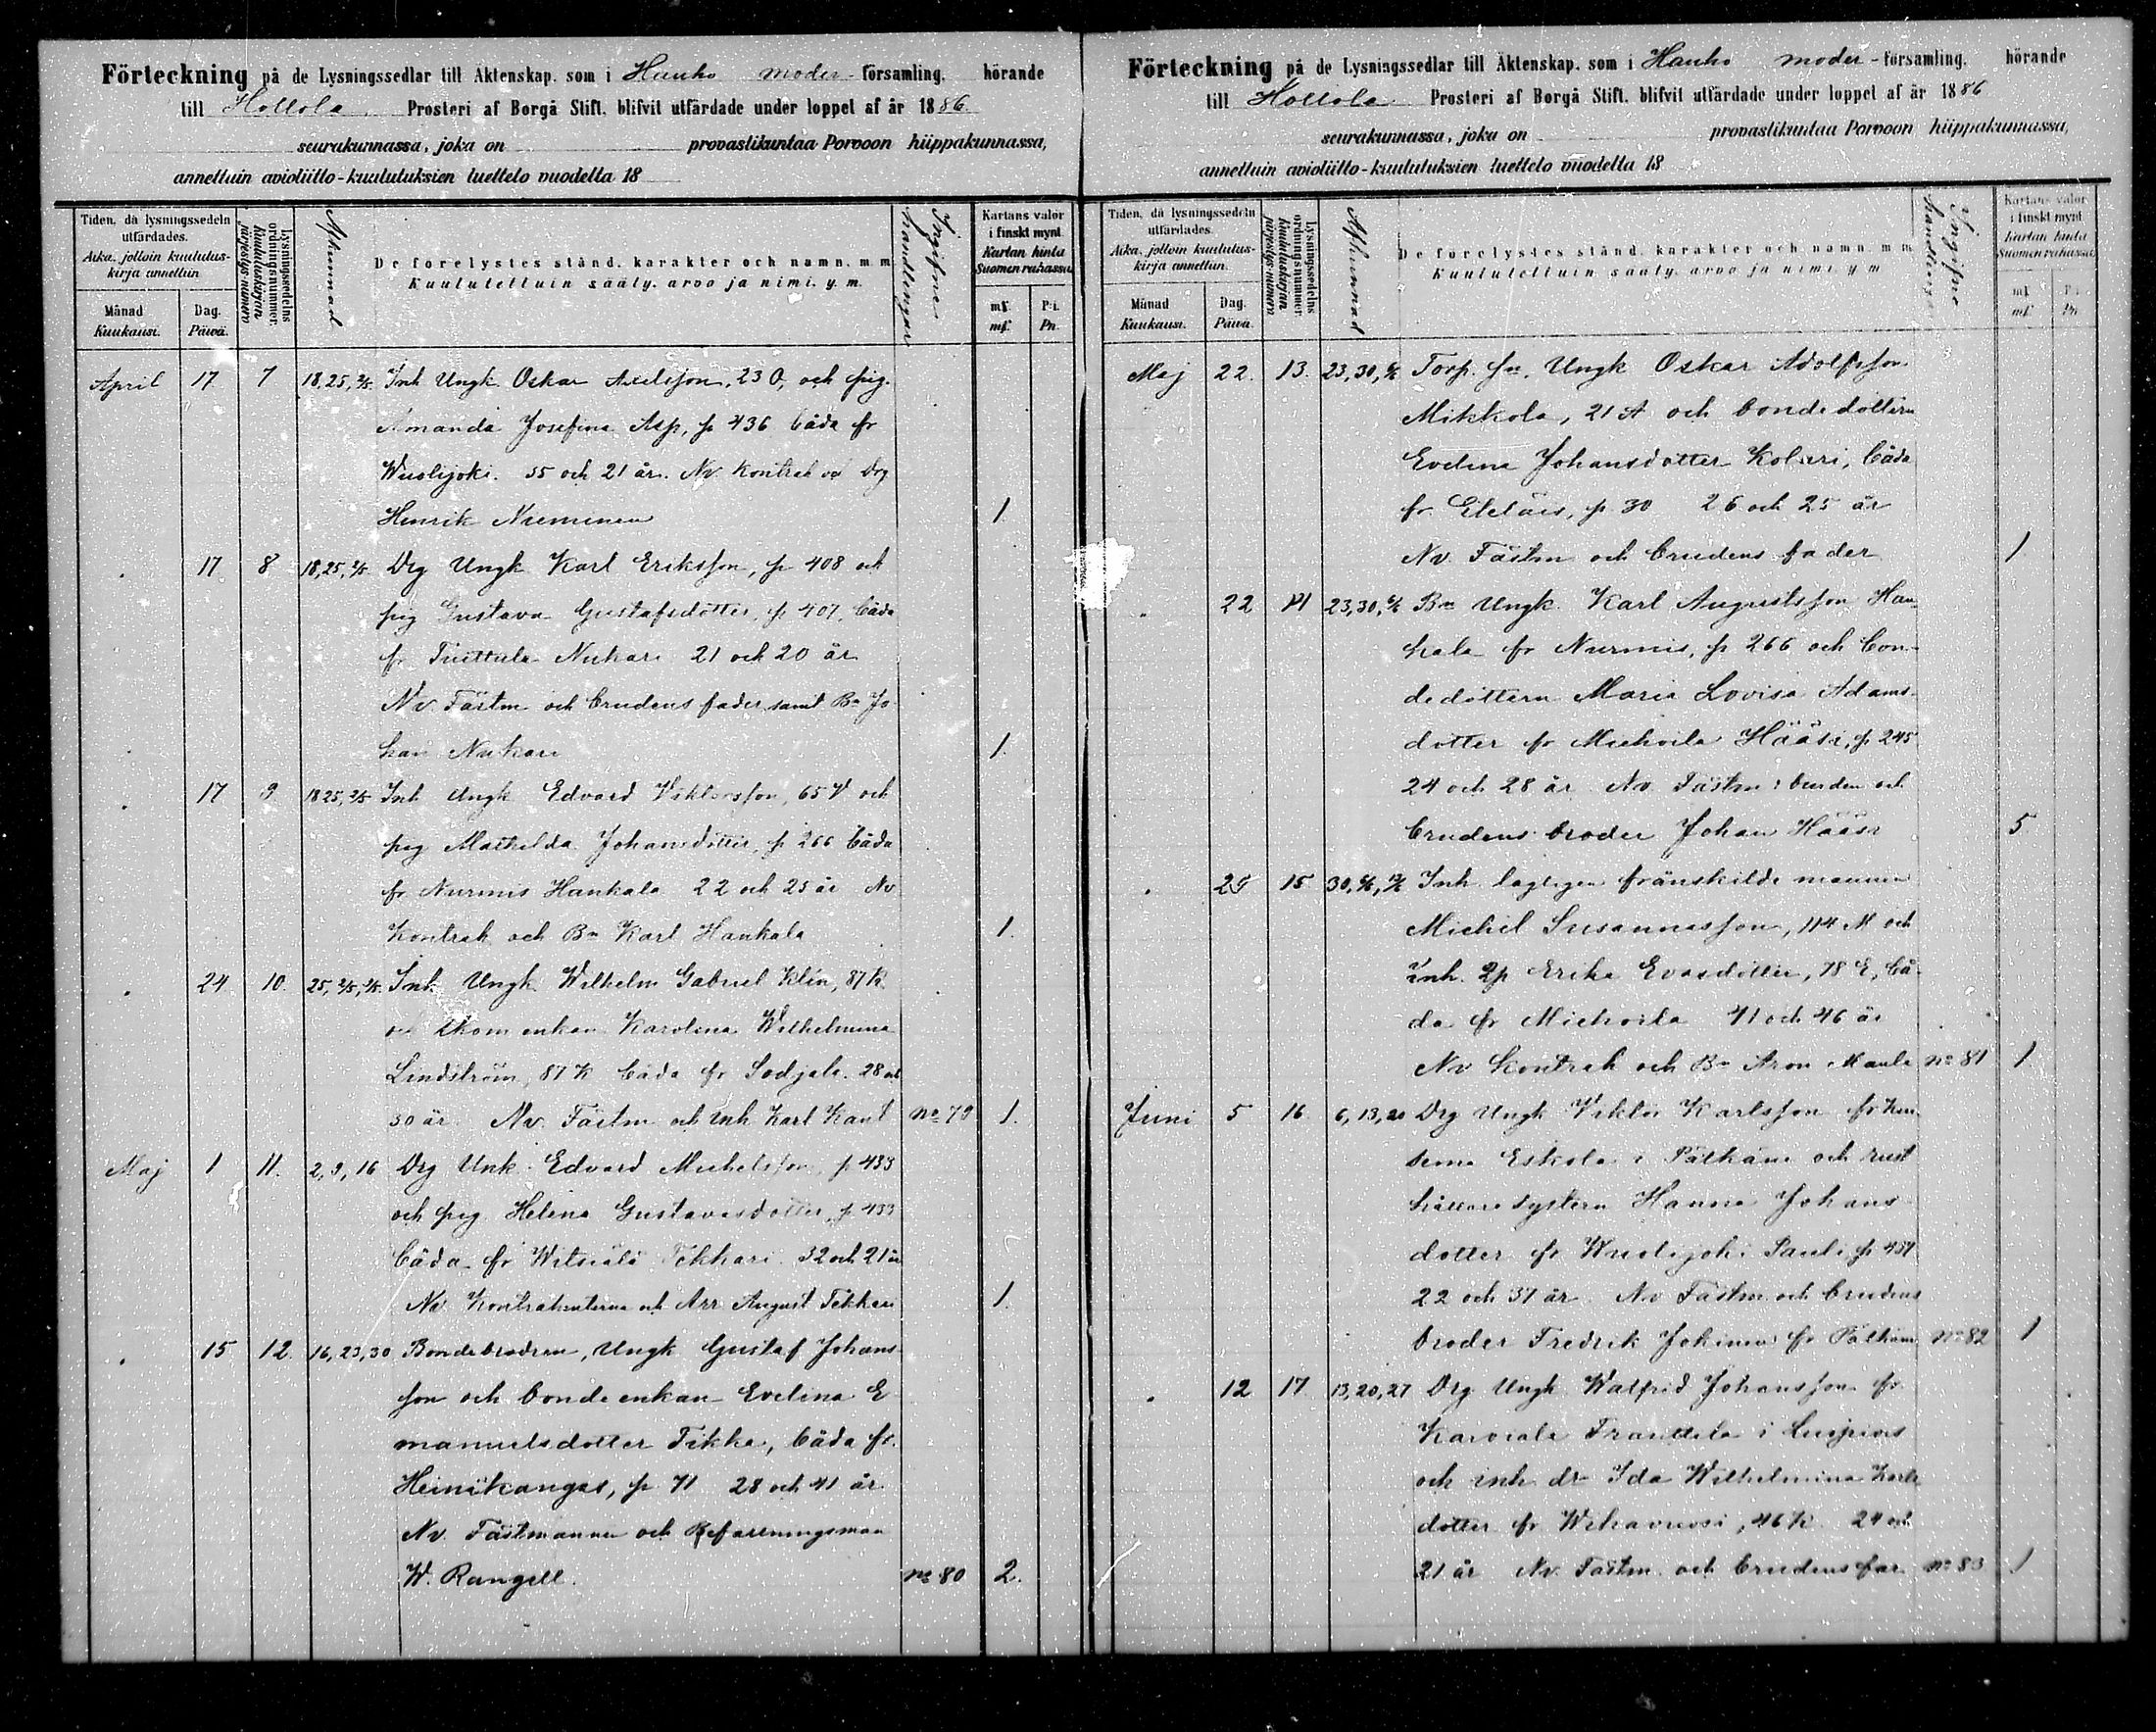 Förteckning på de Lysningssedlar till Äktenskap, som i Hauho moder-församling, hörande
till Hollola Prosteri af Borgå Stift, blifvit utfärdade under loppet af år 1886
seurakunnassa, joka on provastikuntaa Porvoon hiippakunnassa,
annettuin avioliitto-kuulutuksien luettelo vuodelta 18
Tiden, då lysningssedeln utfärdades.
Aika, jolloin kuulutus-kirja annettiin
Månad Kuukausi.
Dag. Päivä.
Lysningssedelns ordningsnummer.
Kuulutuskirjan järjestys-numero
Afkunnad
De förelystes stånd, karakter och namn, m. m.
Kuulutettuin sääty, arvo ja nimi, y. m.
Ingifne handlingar
Kartans valör i finskt mynt
Kartan hinta Suomen rahassa
mk p:i.
mk Pn.
April 17 7 18, 25, 2/5. Inh Ungk Oskar Axelsson, 23 O, och pig.
Amanda Josefina Asp, p 436 båda fr
Wuolijoki. 55 och 21 år. Nv. Kontrah och Drg
Henrik Nieminen 1
17 8 18, 25, 2/5. Drg Ungk Karl Eriksson, p 408 och
pig Gustava Gustafsdotter, p 407, båda
fr Tuittula Nukari 21 och 20 år
Nv. Fästm och brudens fader samt Bn Jo
han Nukari 1.
17 9 18 25, 2/5 Inh Ungk Edvard Viktorsson, 65 V och
pig Mathilda Johansdotter, p 266 båda
fr Nurmis Hankala 22 och 25 år Nv
Kontrah och Bn Karl Hankala 1.
24 10. 25, 2/5, Inh Ungk Wilhelm Gabriel Klin, 87 K
och enkan Karolina Wilhelmina
Lindström, 87 K båda fr Sodjala. 28 och
30 år. Nv. Fästm och inh Karl Kant no 79 1.
Maj 1 11. 2, 9, 16 Drg Unk Edvard Michelsson, p 433
och pig. Helena Gustavasdotter, p 433
båda fr Witsiälä Tekkari 32 och 21 år
Nv. Kontrahenterna och Arr August Tekkari 1.
15 12. 16, 23, 30 Bondebrodren, Ungk Gustaf Johans
son och bonde enkan Evelina E
manuelsdotter Tikka, båda fr.
Heinikangas, p 71 28 och 41 år
Nv. Fästmannen och Befarningsman
W. Rangell. no 80 2.
Förteckning på de Lysningssedlar till Äktenskap, som i Hauho moder-församling, hörande
till Hollola Prosteri af Borgå Stift, blifvit utfärdade under loppet af år 1886
seurakunnassa, joka on provastikuntaa Porvoon hiippakunnassa,
annettuin avioliitto-kuulutuksien luettelo vuodelta 18
Tiden, då lysningssedeln utfärdades.
Aika, jolloin kuulutus-kirja annettiin.
Månad Kuukausi.
Dag. Päivä.
Lysningssedelns ordningsnummer
Kuulutuskirjan järjestys-numero
Afkunnad
De förelystes stånd, karakter och namn, m m
Kuulutettuin sääty, arvo ja nimi, y m
Ingifne handlingar
Kartans valör i finskt mynt
Kartan hinta Suomen rahassa
mk P:i
mk Pn
Maj 22. 13. 23, 30, 6/6 Torp. sn, Ungk Oskar Adolfsson
Mikkola, 21 A och bondedottern
Evelina Johansdotter Kolari, båda
fr. Eteläis, p 30 26 och 25 år
Nv. Fästm och brudens fader 1
22 14 23, 30, 6/6 Bn Ungk Karl Augustsson Han
kala fr Nurmis, p 266 och bon-
dedottern Maria Lovisa Adams-
dotter fr Miehoila Hääsi, p 245
24 och 28 år Nv. Fästm: bruden och
brudens broder Johan Hääsi 5
29 15 30, 6/6, 13/6 Inh. lagligen frånskilde mannen
Michel Susannasson, 114 M och
inh. Qp Erika Evasdotter, 78 E, bå-
da fr Miehoila 41 och 46 år
Nv Kontrah och Bn Aron Maula no 81 1
Juni 5 16. 6, 13, 20 Drg Ungk Viktor Karlsson fr
Eskola i Pälkäne och rust
hållare systern Hanna Johans
dotter fr Wuolijoki Pauli p 457
22 och 37 år Nv Fästm och brudens
broder Fredrik fr Pälkäne no 82 1
12 17. 13, 20, 27 Drg Ungk Walfrid Johansson fr
Karviala Franttila i Luopiois
och inh dr Ida Wilhelmina Karls
dotter fr Wihavuosi, 46 K. 24 och
21 år Nv. Fästm. och brudens far no 83 1